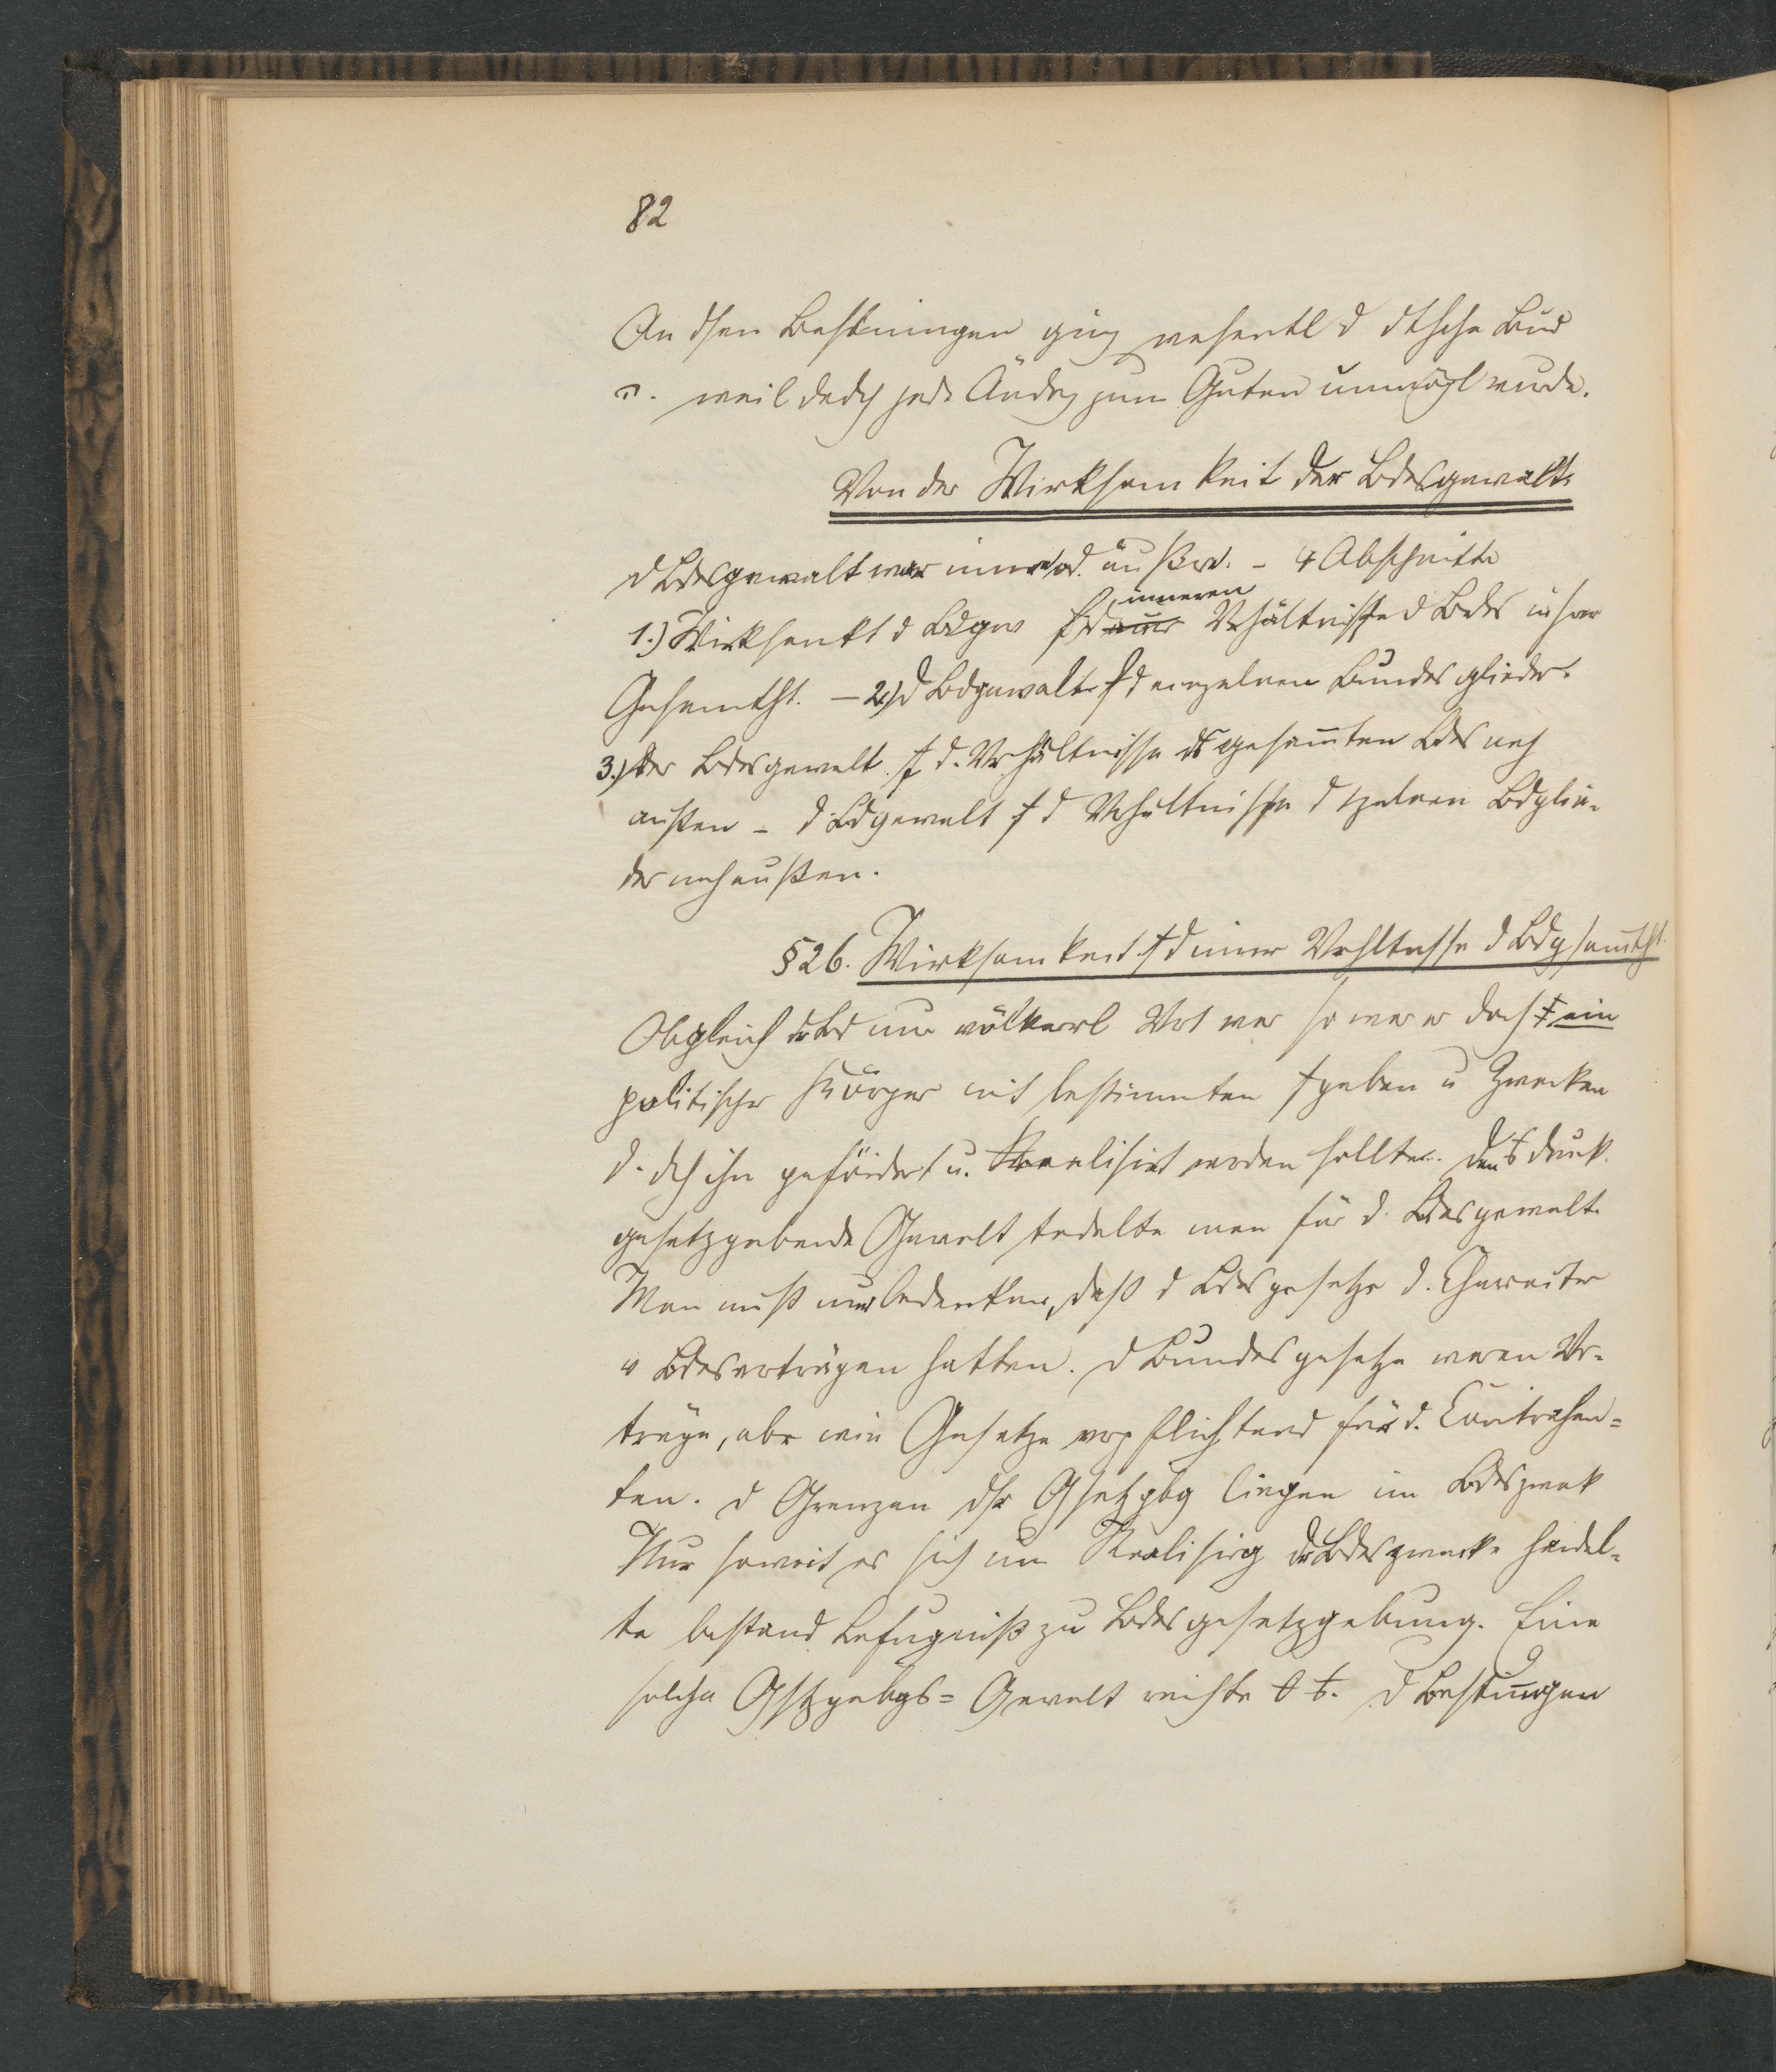 82
An dsen Bestimungen ging wesentl d dtsche Bud
weil ddch jede Ändrg zum Guten unmögl wurde.
Von der Wirksamkeit der Bdesgewalt.
d Bdesgewalt war inner od. äußre. - 4 Abschnitte
inneren
1.) Wirksamkt d Bdgew f d Vrhältnisse d Bdes in ihrer
Gesamtht. - 2.) d Bdgewalt f d einzelnen Bundesglieder.
3.) der Bdesgewalt f d. Vrhältnisse ds gesamten Bdes nach
außen - d Bdgewalt f d Vrhältnisse d Bdglie-
der nach außen.
§ 26. Wirksamkeit f d inner Vrhltnsse d Bdgsamtht.
Obgleich dr Bd nur völkerrl Vrt war so war er doch ein
politischer Körper mit bestimmten u Zwecken
d. dch ihn gefördert u. realisirt werden sollten. Den druck
gesetzgebende Gewalt tadelte man für d. Bdesgewalt.
Man muß nur bedenken, daß d Bdesgesetze d. Charakter
v Bdesverträgen hatten. d Bundesgesetze waren Vr-
träge, abr wie Gesetze verpflichtend für d. Contrahen-
ten. d Grenzen dsr Gsetzgbg liegen im Bdeszwek
Nur soweit es sich um Realisirg dr Bdeszwecke handel-
te bestand Befugniß zu Bdesgesetzgebung. Eine
solche Gstzgebgs= Gewalt reichte d Bestimungen